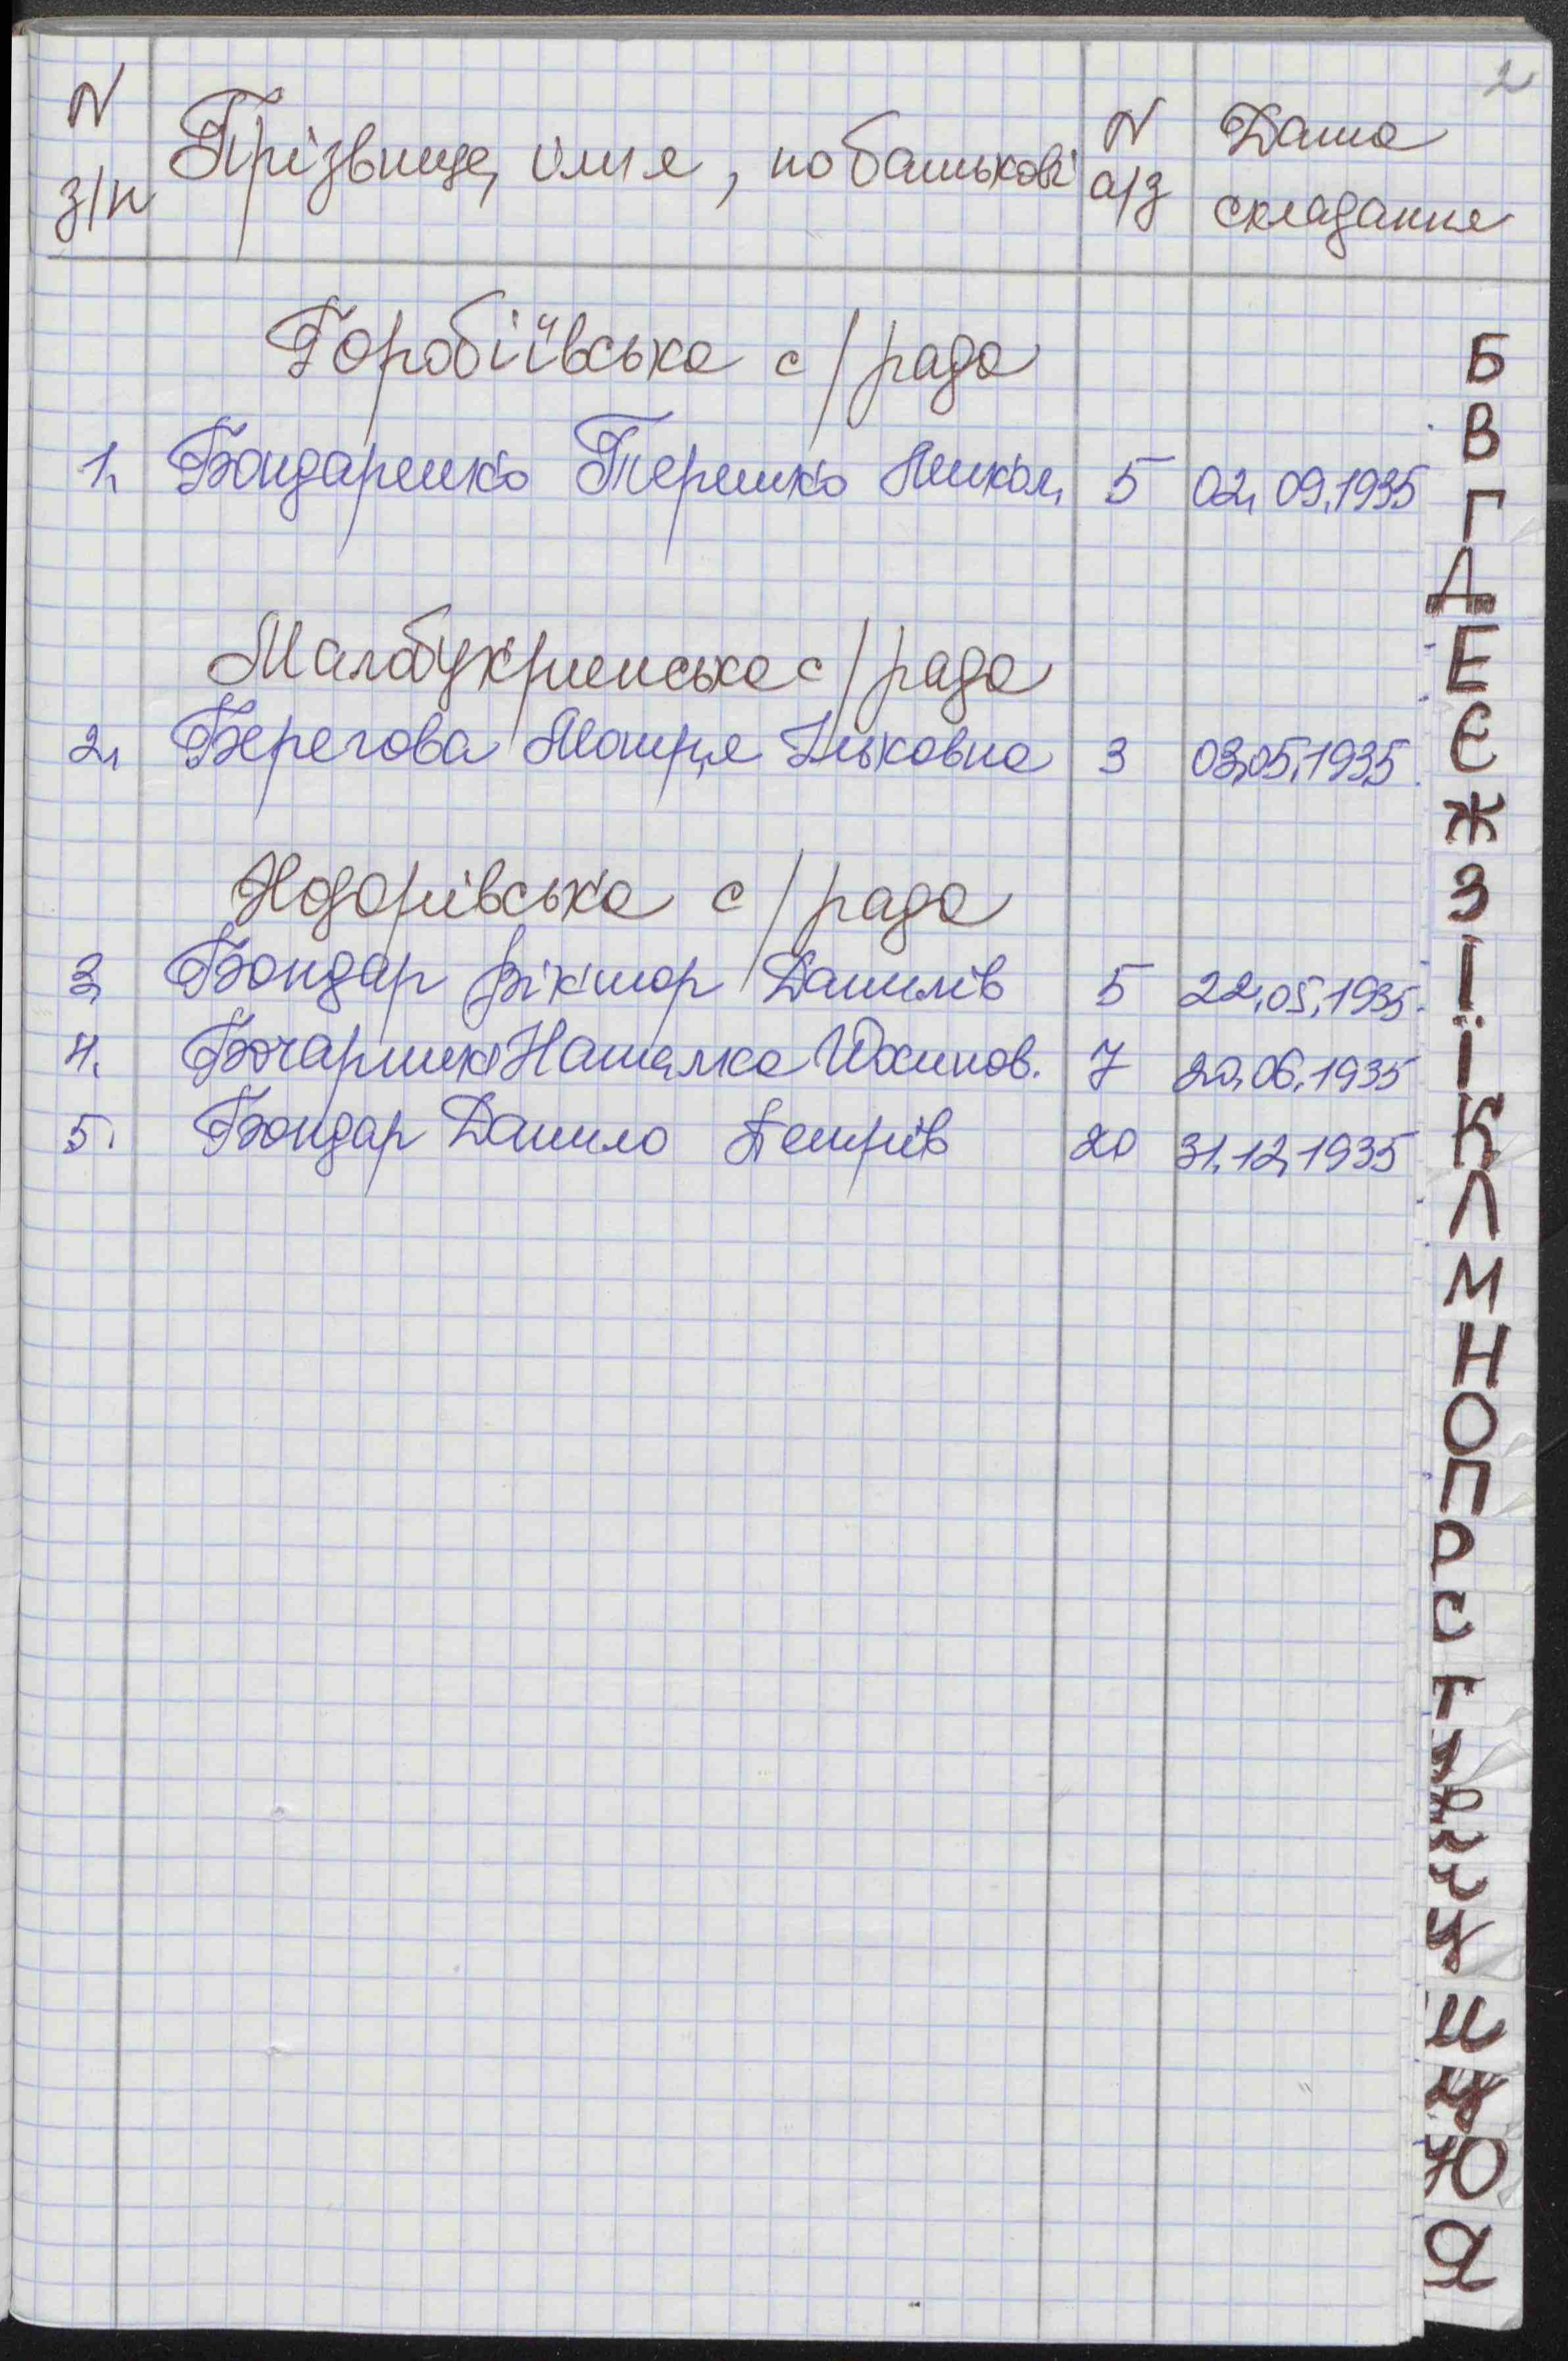 2
N з/п Прізвище, ім'я, по батькові N а/з Дата складання
Горобіївська с/рада
1. Бондаренко Терешко Никол. 5 02.09.1935
Малобукринська с/рада
2. Берегова Мотря Ільковна 3 03.05.1935
Ходорівська с/рада
3. Бондар Віктор Данилів 5 22.05.1935
4. Наталка Юхимов. 7 20.06.1935
5. Бондар Данило Петрів 20 31.12.1935
Б
В
Г
Д
Е
Є
Ж
З
І
Ї
К
Л
М
Н
О
П
Р
С
Т
Ш
Щ
Ю
Я